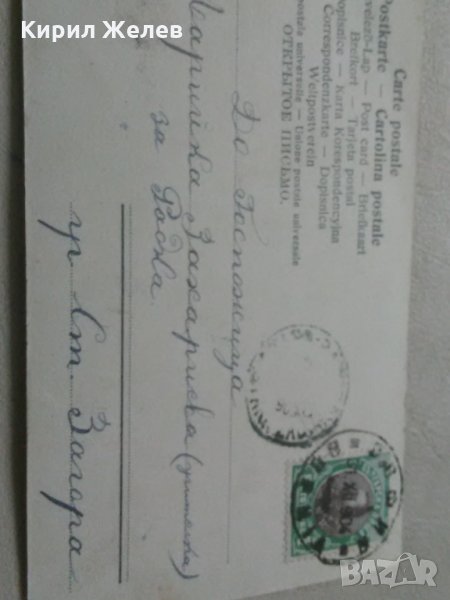 Кирил Желев
Carte postale
Postkarte — Cartolina postale
Levelező-Lap — Post card — Briefkaart
Brefkort — Tarjeta postal
Dopisnice — Karta Korespondencyjna
Correspondenzkarte — Dopisnica
Weltpostverein
postale universelle — Unione postale universale
ОТКРЫТОЕ ПИСЬМО.
До Госпожица
Марийка Захариева
за Роска
гр. Ст. Загора
BAZAR